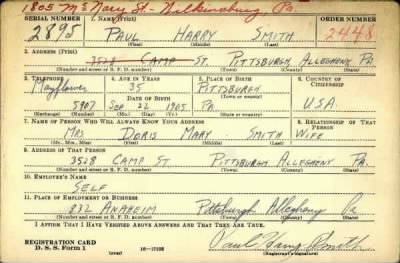 1805 McNary St- Wilkinsburg, Pa.
SERIAL NUMBER 1. NAME (Print) ORDER NUMBER
2895 PAUL HARRY SMITH 2448
(First) (Middle) (Last)
2. ADDRESS (Print)
3528 CAMP ST. PITTSBURGH, ALLEGHENY PA.
(Number and street or R. F. D. number) (Town) (County) (State)
3. TELEPHONE 4. AGE IN YEARS 5. PLACE OF BIRTH 6. COUNTRY OF CITIZENSHIP
Mayflower 35 PITTSBURGH
DATE OF BIRTH (Town or county)
5907 SEP 22 1905 PA USA
(Exchange) (Number) (Mo.) (Day) (Yr.) (State or country)
7. NAME OF PERSON WHO WILL ALWAYS KNOW YOUR ADDRESS 8. RELATIONSHIP OF THAT PERSON
MRS. DORIS MARY SMITH WIFE
(Mr., Mrs., Miss) (First) (Middle) (Last)
9. ADDRESS OF THAT PERSON
3528 CAMP ST. PITTSBURGH ALLEGHENY PA.
(Number and street or R. F. D. number) (Town) (County) (State)
10. EMPLOYER'S NAME
SELF
11. PLACE OF EMPLOYMENT OR BUSINESS
832 ANAHEIM Pittsburgh Allegheny Pa
(Number and street or R. F. D. number) (Town) (County) (State)
I AFFIRM THAT I HAVE VERIFIED ABOVE ANSWERS AND THAT THEY ARE TRUE.
REGISTRATION CARD
D. S. S. Form 1 (over) Paul Harry Smith
(Registrant's signature)